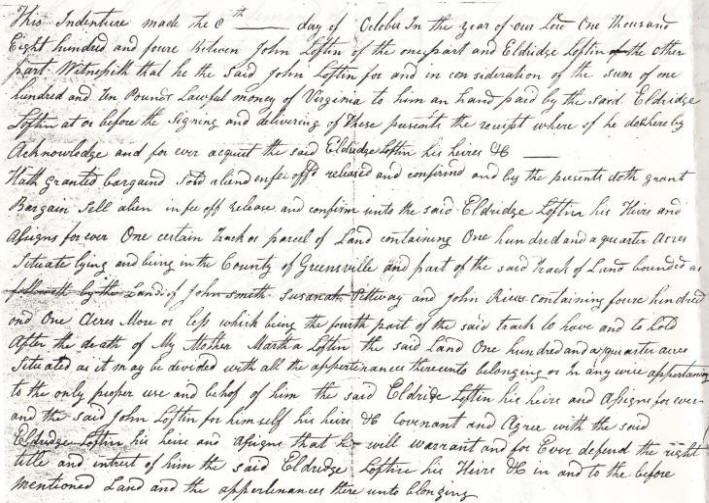 This Indenture made the 8th ___ day of October In the year of our Lord One thousand
Eight hundred and foure between John Loftin of the one part and Eldridge Loftin of the other
part Witnesseth that he the said John Loftin for and in consideration of the sum of one
hundred and Ten Pounds Lawful money of Virginia to him an hand paid by the said Eldridge
Loftin at or before the signing and delivering of these presents the receipt where of he doth hereby
Acknowledge and for ever acquit the said Eldridge Loftin his heires &C ___
Hath granted bargaind sold aliend enfeoff'd released and confirmed and by the presents doth grant
Bargain Sell alien infeeoff release and confirm unto the said Eldredge Loftin his Heirs and
Assigns for ever One certain Track or parcel of Land containing One hundred and a quarter Acres
Situate lying and being in the County of Greensville and part of the said track of Land bounded as
followeth by the Lands of John Smith Susanah Pettway and John Rives containing foure hundred
and One Acres More or less which being the fourth part of the said track to have and to hold
After the death of My Mother Martha Loftin the said Land One hundred and a quarter acres
Situated as it may be devided with all the appertinances thereunto belonging or in any wise appertaining
to the only proper use and behof of him the said Eldride Loftin his heirs and Assigns for ever
and the said John Loftin for himself his heirs &C Covenant and Agree with the said
Eldridge Loftin his heirs and Assigns that he will warrant and for Ever defend the right
title and intrest of him the said Eldridge Loftin his Heirs &C in and to the before
mentioned Land and the appertenances there unto blonging